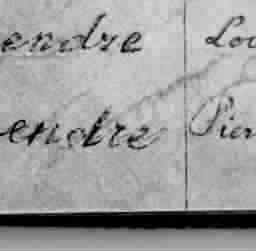 endre Lou
endre Pier